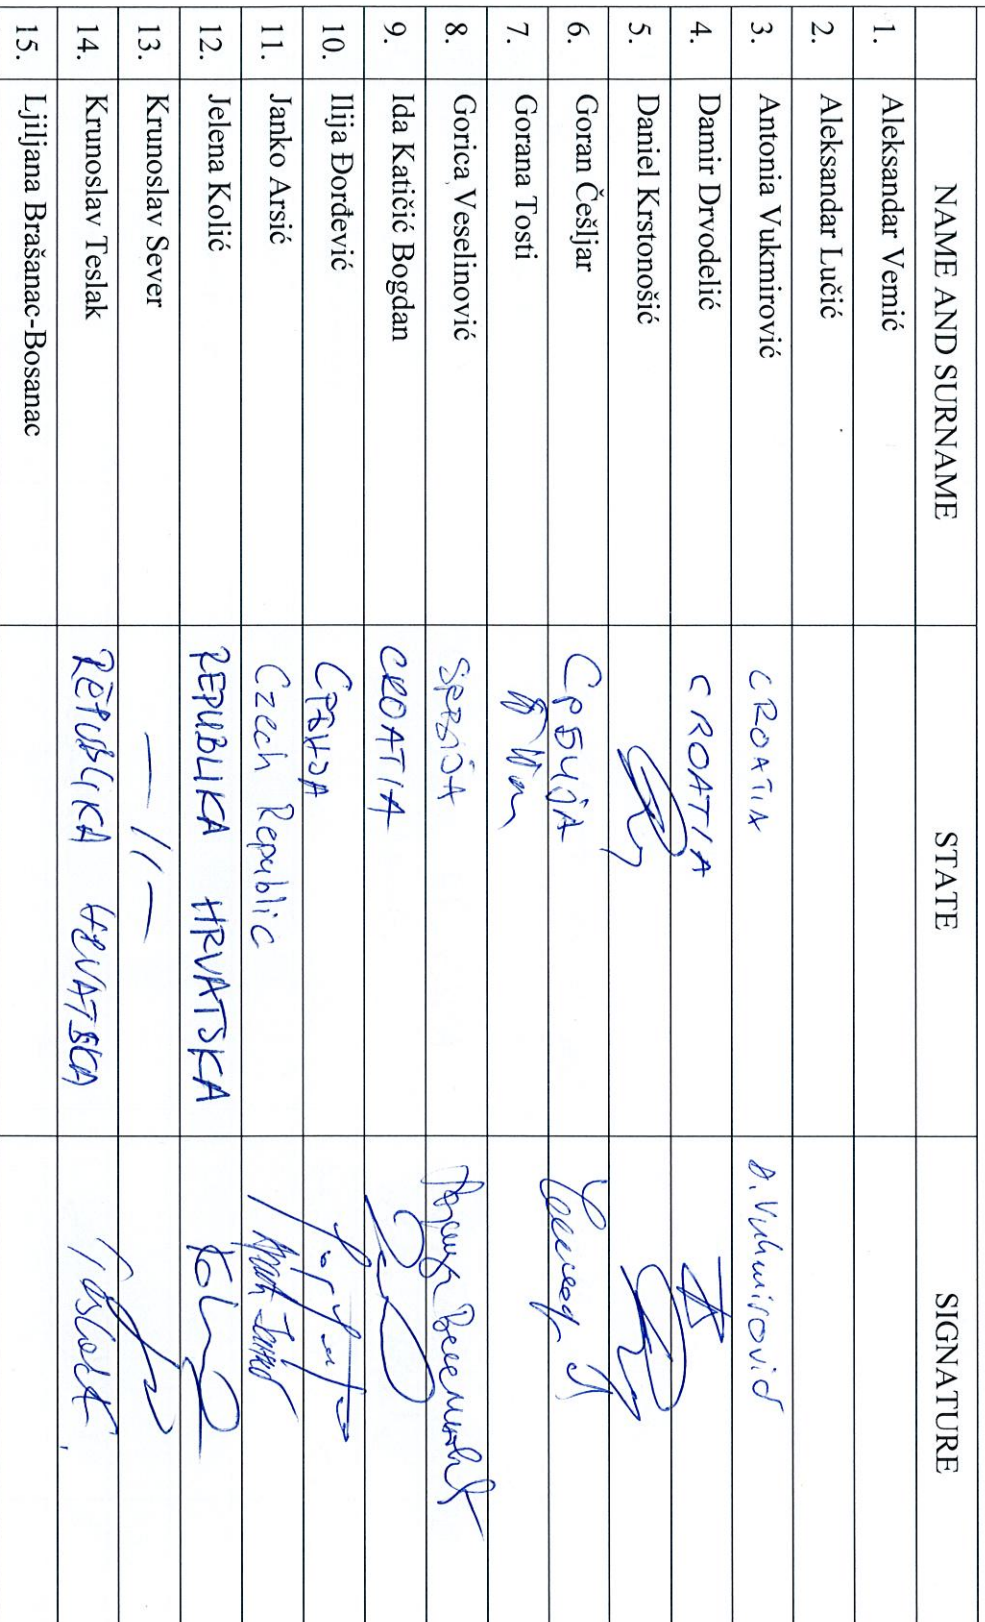 NAME AND SURNAME STATE SIGNATURE
1. Aleksandar Vemić
2. Aleksandar Lučić
3. Antonia Vukmirović CROATIA A. Vukmirović
4. Damir Drvodelić CROATIA
5. Daniel Krstonošić
6. Goran Češljar СРБИЈА
7. Gorana Tosti
8. Gorica Veselinović SRBIJA
9. Ida Katičić Bogdan CROATIA
10. Ilija Đorđević СРБИЈА
11. Janko Arsić Czech Republic
12. Jelena Kolić REPUBLIKA HRVATSKA
13. Krunoslav Sever —//—
14. Krunoslav Teslak REPUBLIKA HRVATSKA
15. Ljiljana Brašanac-Bosanac